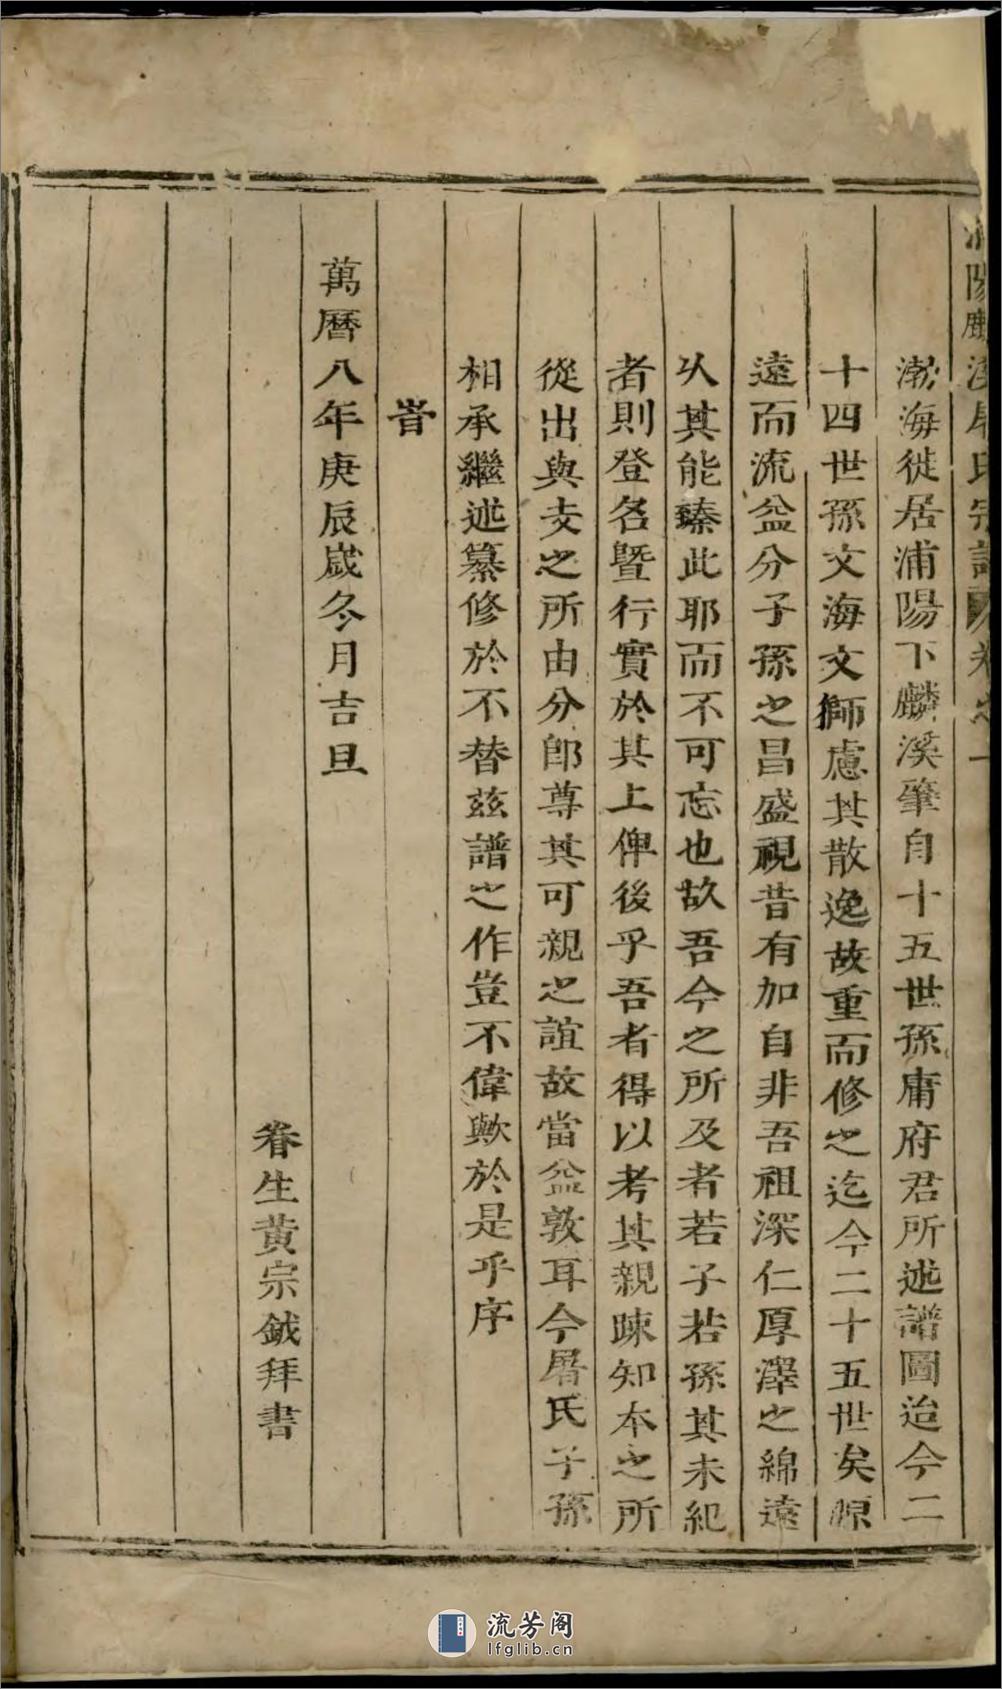 陽麟溪屠氏宗譜卷之一
渤海徙居浦陽下麟溪肇自十五世孫庸府君所述譜圖迨今二
十四世孫文海文獅慮其散逸故重而修之迄今二十五世矣源
遠而流益分子孫之昌盛視昔有加自非吾祖深仁厚澤之綿遠
从其能臻此耶而不可忘也故吾今之所及者若子若孫其未紀
者則登名曁行實於其上俾後乎吾者得以考其親踈知本之所
從出與支之所由分郎尊其可親之誼故當益敦耳今屠氏子孫
相承繼述纂修於不替茲譜之作豈不偉歟於是乎序
旹
萬曆八年庚辰歲冬月吉旦
眷生黄宗鉞拜書
流芳阁
lfglib.cn